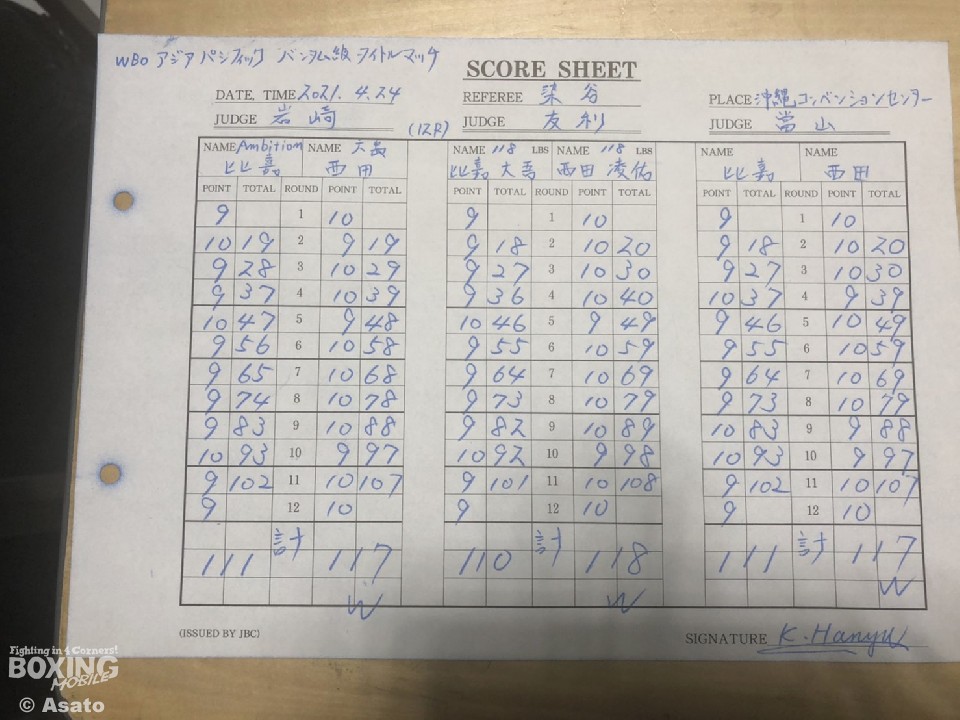 WBO アジア パシフィック バンタム級 タイトルマッチ
SCORE SHEET
DATE, TIME 2021. 4. 24 REFEREE 染谷 PLACE 沖縄コンベンションセンター
JUDGE 岩崎 (12R) JUDGE 友利 JUDGE 當山
NAME Ambition NAME 大晶 NAME 118 LBS NAME 118 LBS NAME NAME
比嘉 西田 比嘉 大吾 西田 凌佑 比嘉 西田
POINT TOTAL ROUND POINT TOTAL POINT TOTAL ROUND POINT TOTAL POINT TOTAL ROUND POINT TOTAL
9 1 10 9 1 10 9 1 10
10 19 2 9 19 9 18 2 10 20 9 18 2 10 20
9 28 3 10 29 9 27 3 10 30 9 27 3 10 30
9 37 4 10 39 9 36 4 10 40 10 37 4 9 39
10 47 5 9 48 10 46 5 9 49 9 46 5 10 49
9 56 6 10 58 9 55 6 10 59 9 55 6 10 59
9 65 7 10 68 9 64 7 10 69 9 64 7 10 69
9 74 8 10 78 9 73 8 10 79 9 73 8 10 79
9 83 9 10 88 9 82 9 10 89 10 83 9 9 88
10 93 10 9 97 10 92 10 9 98 10 93 10 9 97
9 102 11 10 107 9 101 11 10 108 9 102 11 10 107
9 12 10 9 12 10 9 12 10
111 計 117 110 計 118 111 計 117
W W W
(ISSUED BY JBC) SIGNATURE K. Hanyu
Fighting in 4 Corners!
BOXING
MOBILE
© Asato